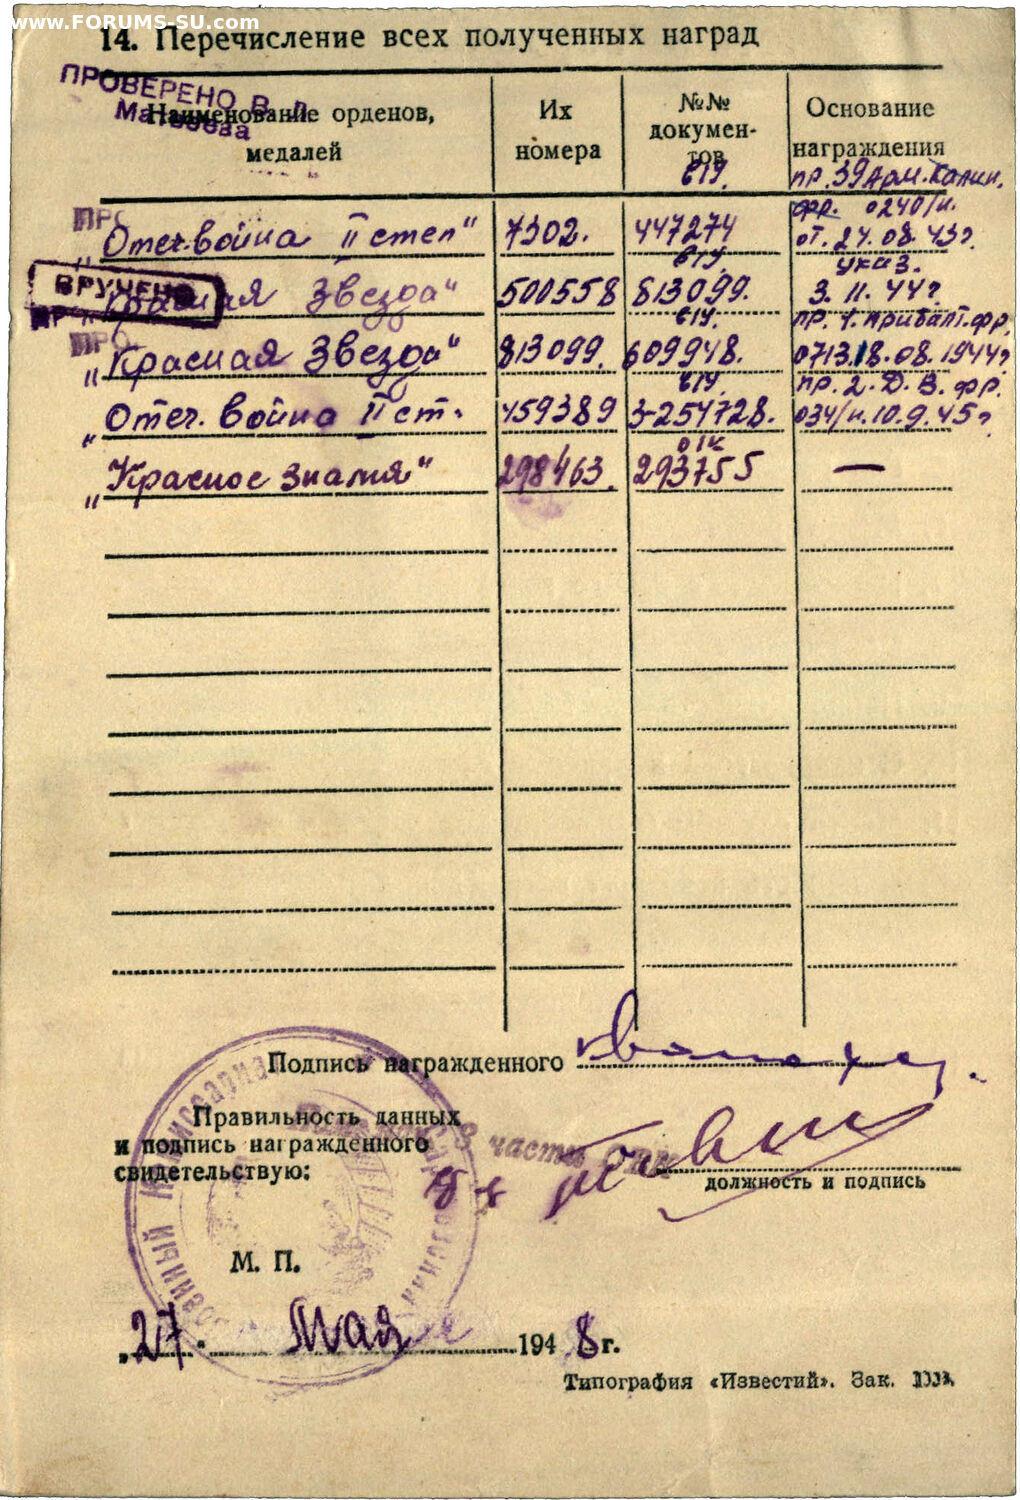 www.FORUMS-SU.com
14. Перечисление всех полученных наград
ПРОВЕРЕНО В. Л.
Матвеева
Наименование орденов, медалей
Их номера
№№ докумен-тов
Основание награждения
„Отеч.война II степ" 7302. 447274 пр. 39 Арм. Калин. фр. 0240/н. от. 24.08.43г.
ВРУЧЕНО
„Красная Звезда" 500558 813099. указ. 3.11.44г
„Красная Звезда" 813099. 609948. пр. 1. прибалт.фр. 0713.18.08.1944г
„Отеч. война II ст. 459389 3-254728. пр. 2. Д. В. фр. 034/н.10.9.45г
„Красное Знамя" 298463. 293755 —
Подпись награжденного
Правильность данных
и подпись награжденного
свидетельствую:
части
должность и подпись
М. П.
„27" Мая 1948 г.
Типография «Известий». Зак.